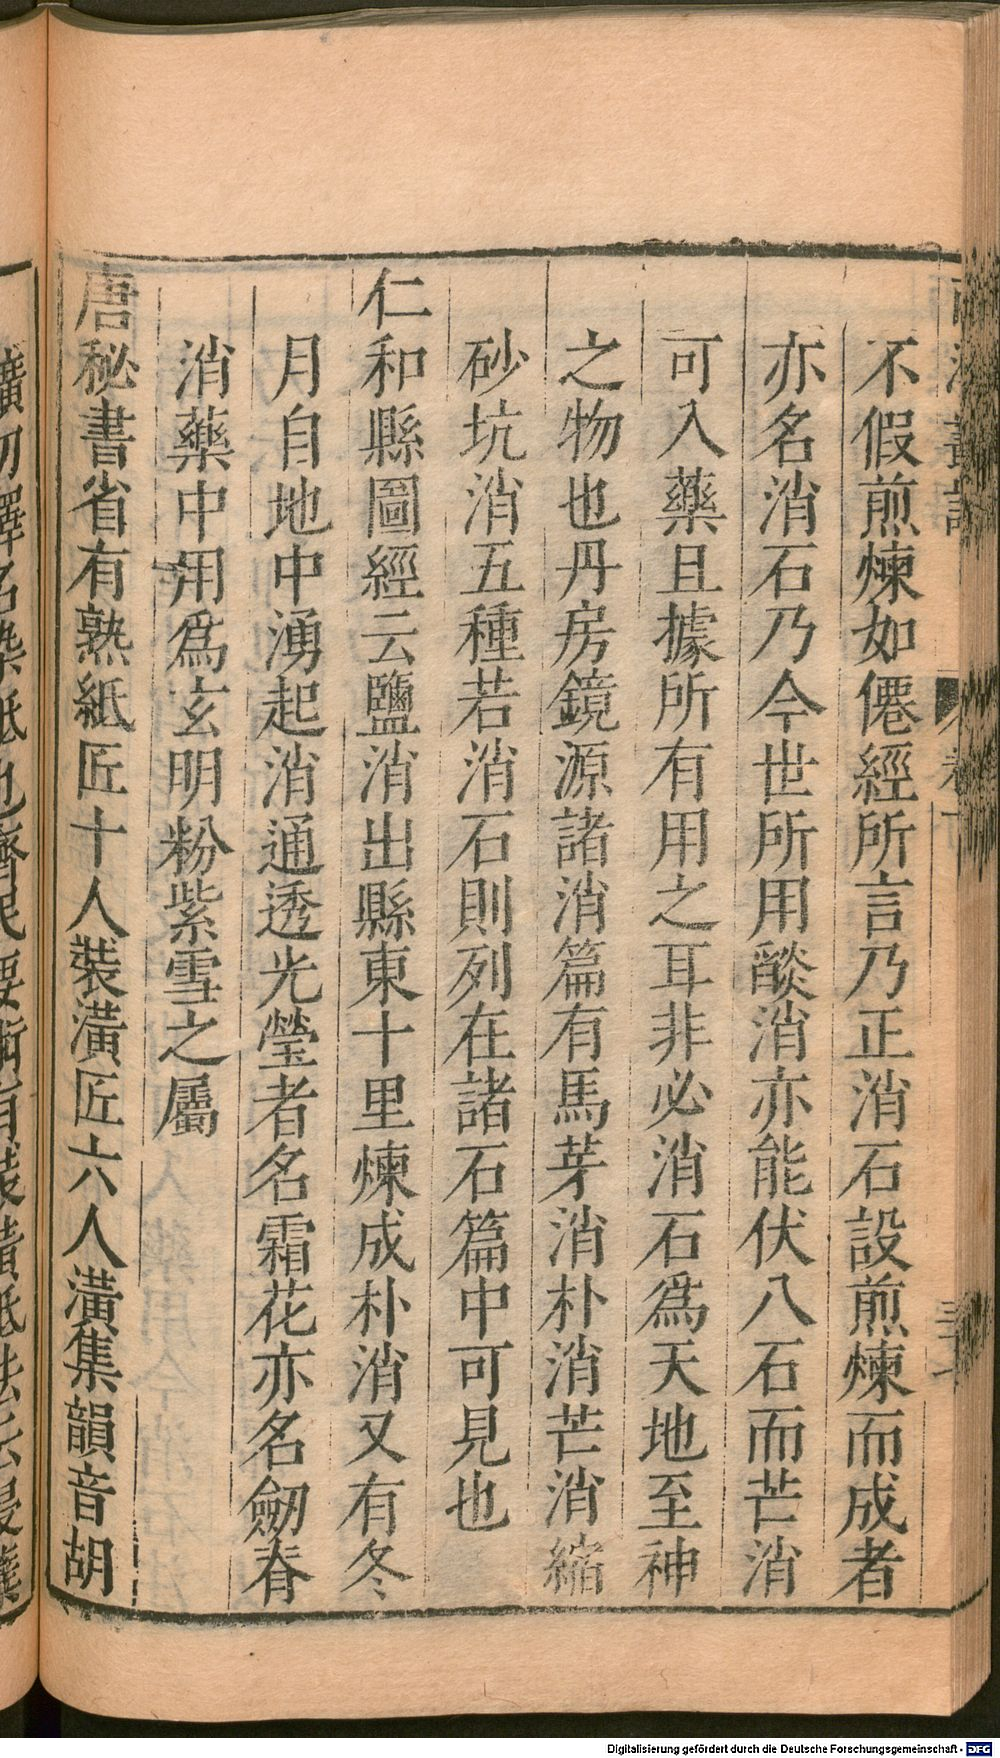 不假煎煉如僊經所言乃正消石設煎煉而成者
亦名消石乃今世所用燄消亦能伏八石而芒消
可入藥且據所有用之耳非必消石爲天地至神
之物也丹房鏡源諸消篇有馬芽消朴消芒消縮
砂坑消五種若消石則列在諸石篇中可見也
仁和縣圖經云鹽消出縣東十里煉成朴消又有冬
月自地中湧起消通透光瑩者名霜花亦名劒春
消藥中用爲玄明粉紫雪之屬
唐秘書省有熟紙匠十人裝潢匠六人潢集韻音胡
Digitalisierung gefördert durch die Deutsche Forschungsgemeinschaft - DFG